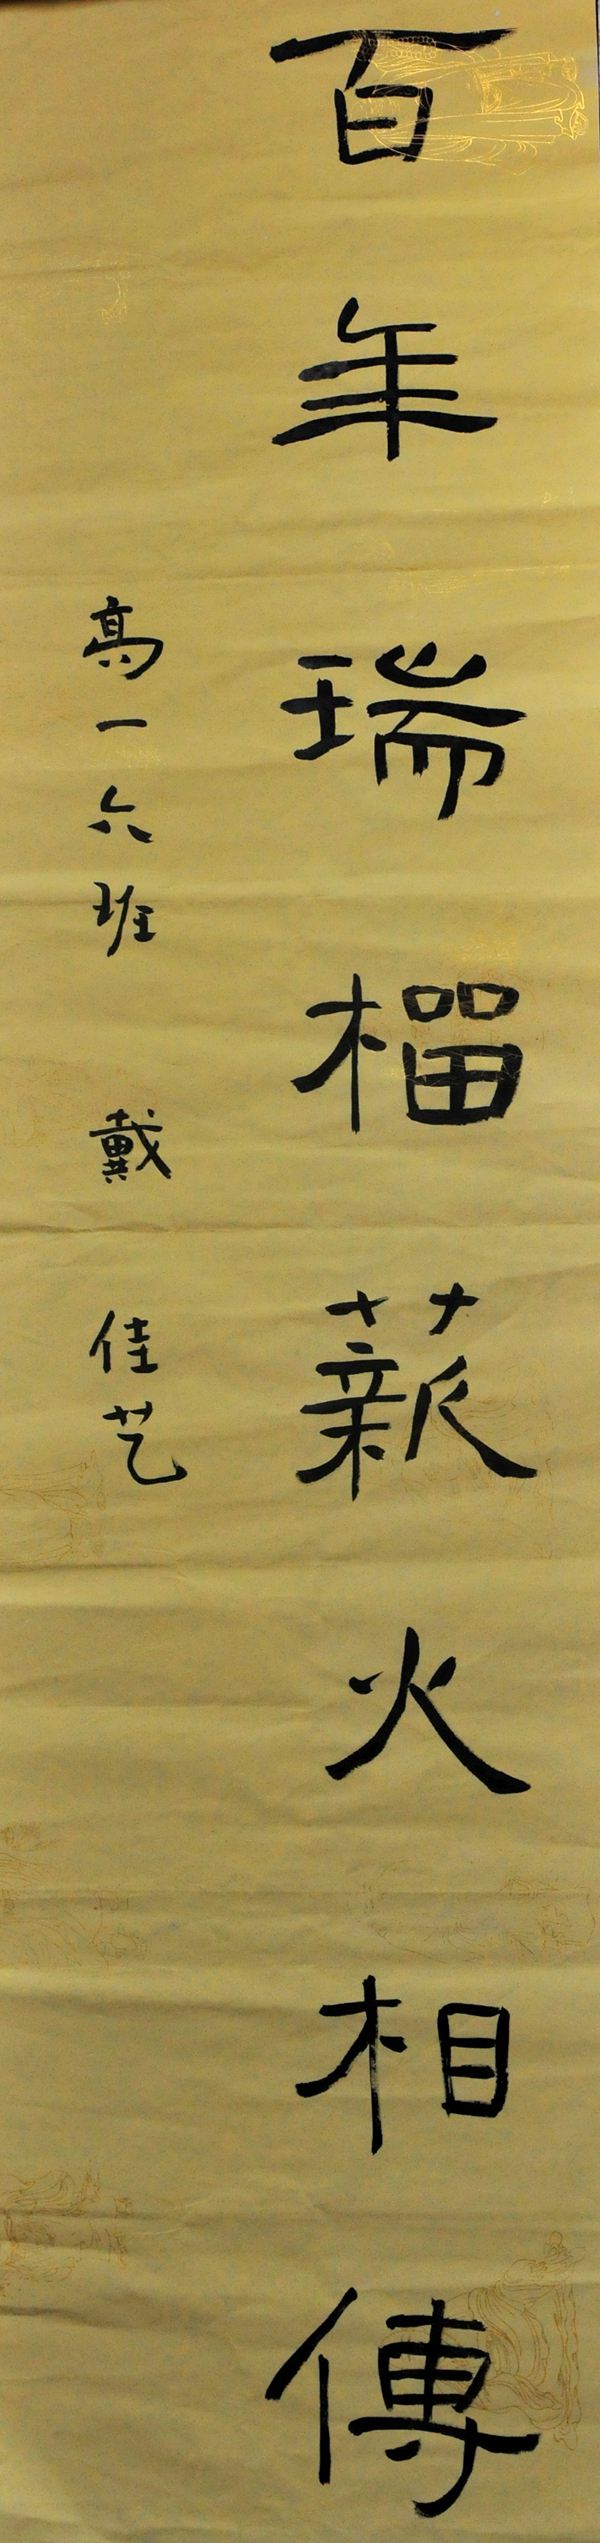 百年瑞榴薪火相傳
高一六班 戴佳艺